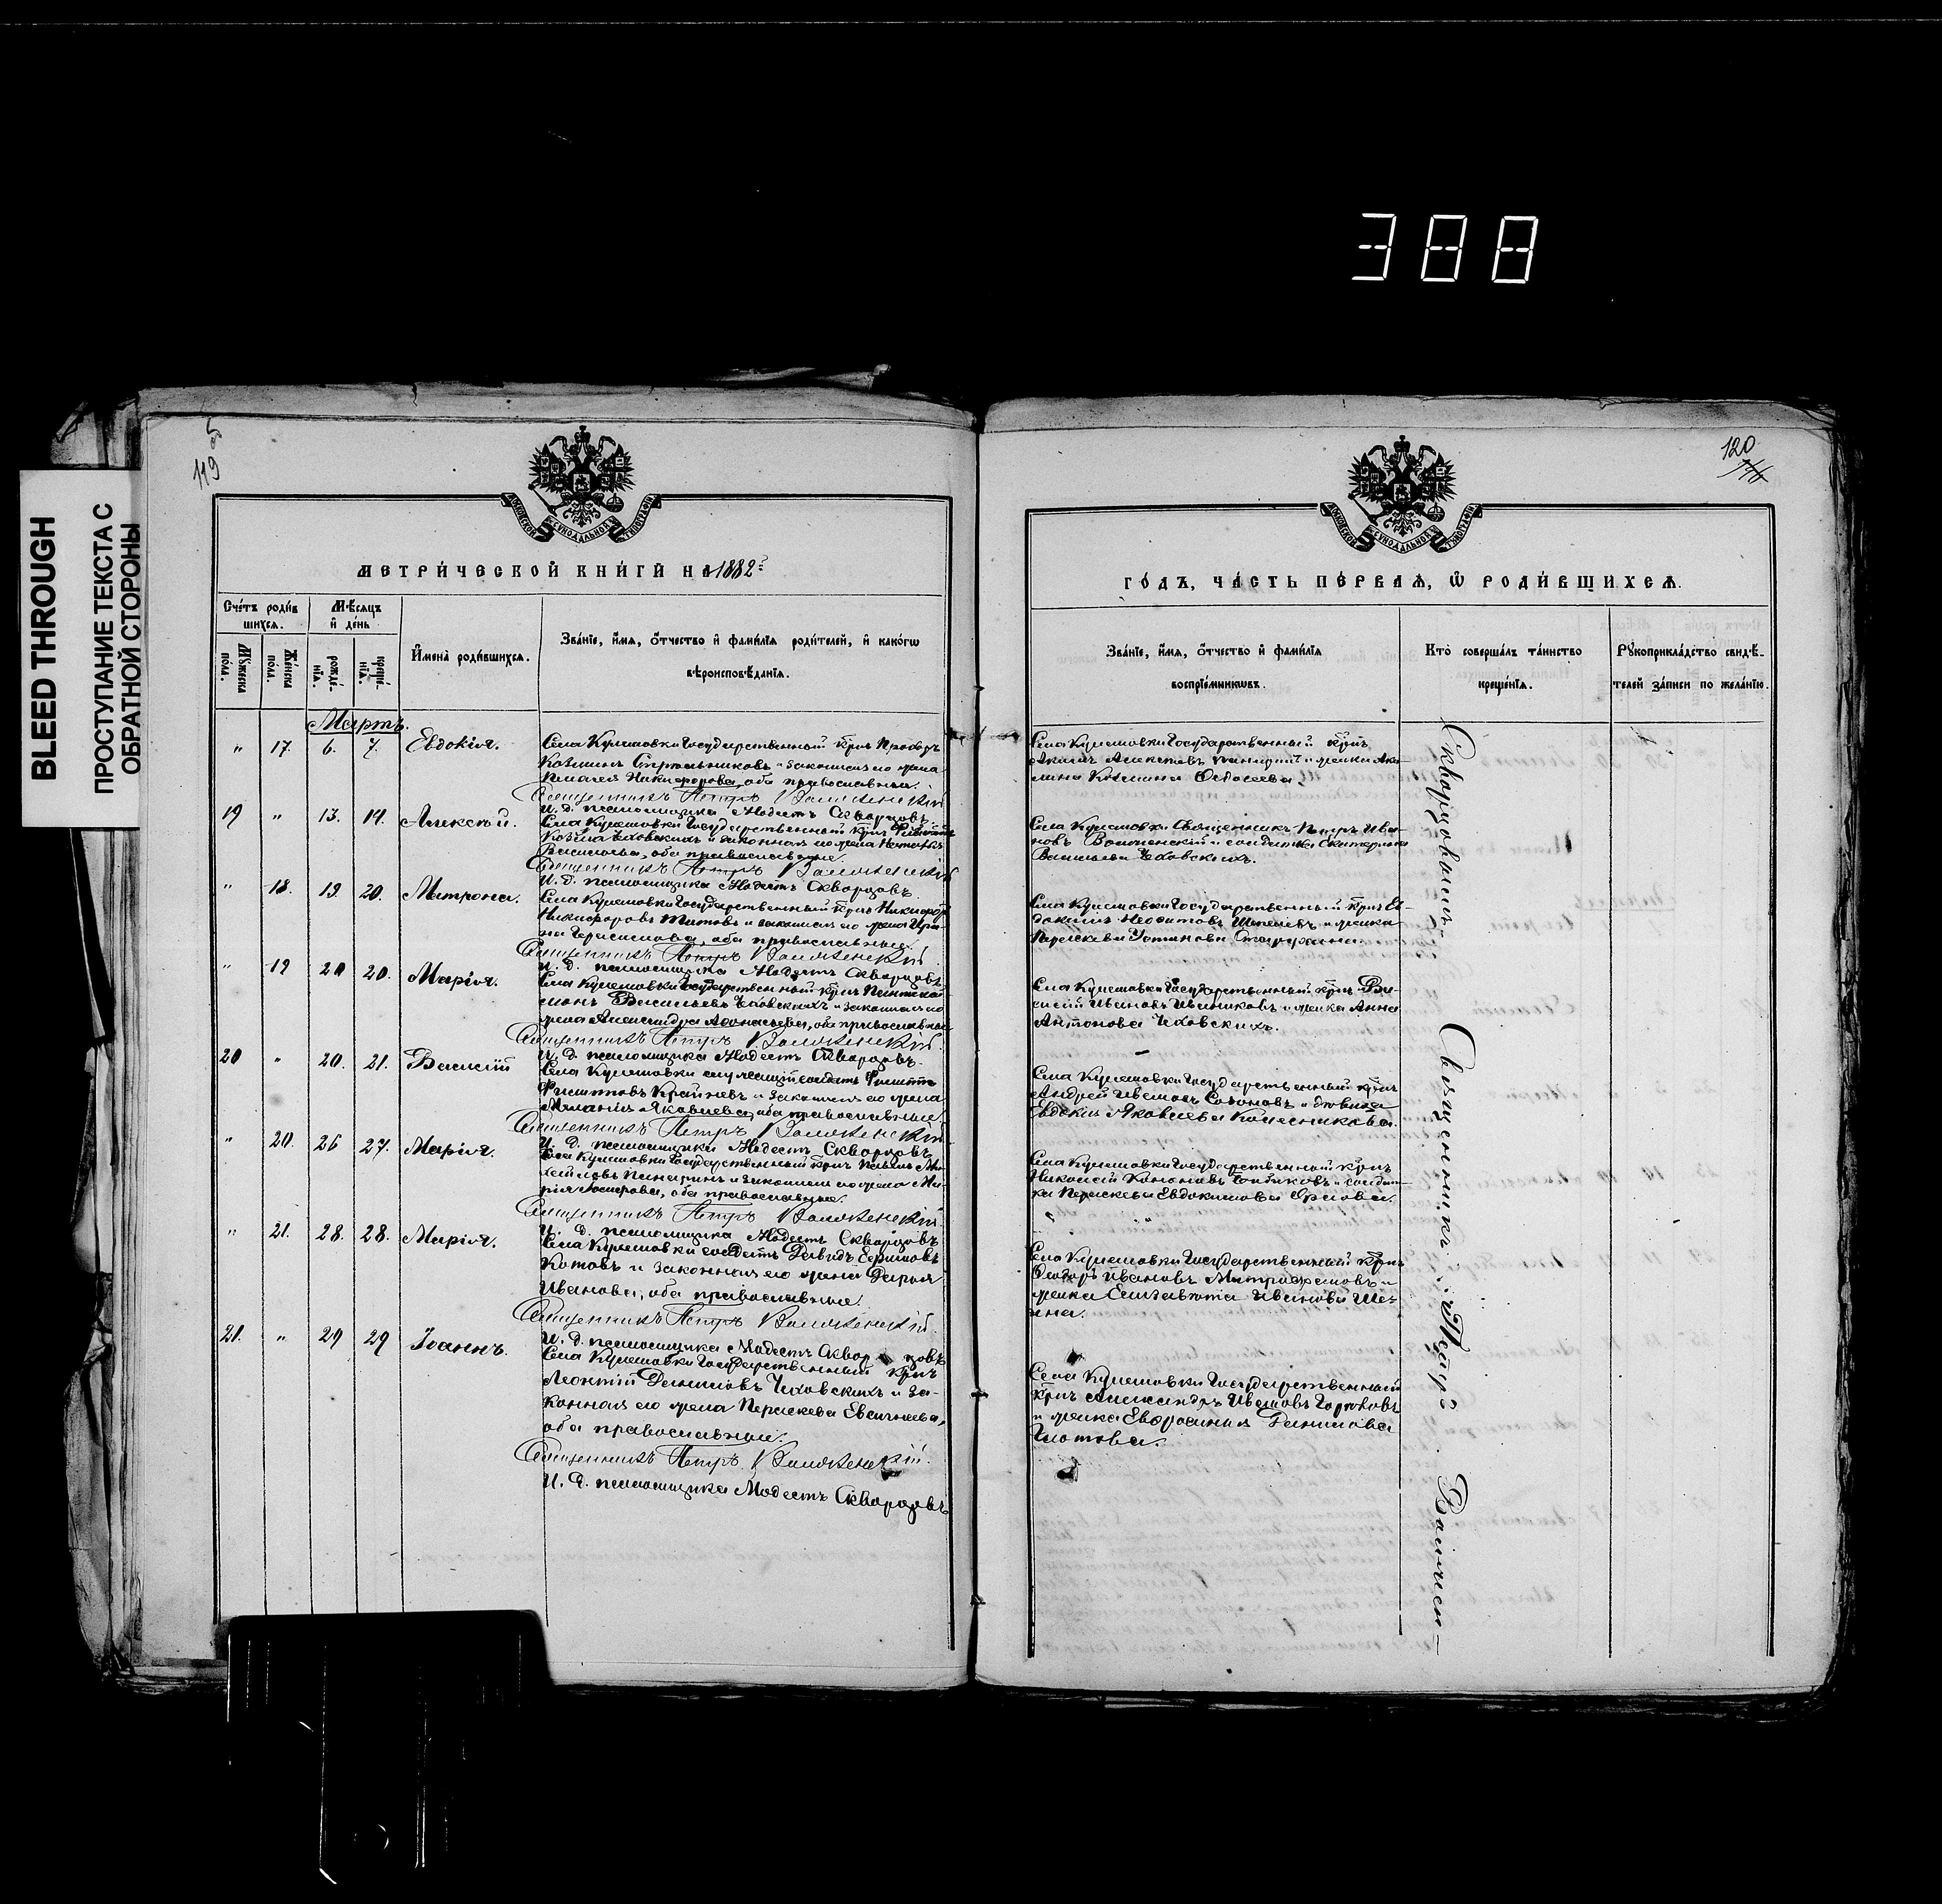 388
BLEED THROUGH
ПРОСТУПАНИЕ ТЕКСТА С
ОБРАТНОЙ СТОРОНЫ
119
МЕТРИЧЕСКОЙ КНИГИ НА 1882
Счетъ родив
шихся.
Мѣсяцъ
и день
Мужеска
пола.
Женска
пола.
рожде-
нія.
креще-
нія.
Имена родившихся.
Званіе, имя, отчество и фамилія родителей, и какого
вѣроисповѣданія.
Мартъ.
" 17. 6. 7. Евдокія.
Села Кулешовки Государственный крн. Прохоръ
Козьминъ Стрельниковъ и законная его жена
Никифорова, оба православные.
Священникъ Петръ Валюженскій
И. д. псаломщика Модестъ Скворцовъ.
19 " 13. 14. Алексѣй.
Села Кулешовки Государственный крн.
Козьминъ Чеховскихъ и законная его жена Наталья
Васильева, оба православные.
Священникъ Петръ Валюженскій
И. д. псаломщика Модестъ Скворцовъ.
" 18. 19 20. Матрона.
Села Кулешовки Государственный крн. Никифоръ
Никифоровъ Титовъ и законная его жена Ири-
на Герасимова, оба православные.
Священникъ Петръ Валюженскій.
И. д. псаломщика Модестъ Скворцовъ.
" 19 20 20. Марія.
Села Кулешовки Государственный крн. Пантелей-
монъ Васильевъ Чеховскихъ и законная его
жена Александра Афанасьева, оба православные
Священникъ Петръ Валюженскій.
И. д. псаломщика Модестъ Скворцовъ.
20 " 20. 21. Василій
Села Кулешовки служащій солдатъ Филиппъ
Филипповъ Крайневъ и законная его жена
Меланія Яковлева, оба православные
Священникъ Петръ Валюженскій
И. д. псаломщика Модестъ Скворцовъ.
" 20. 26 27. Марія.
Села Кулешовки Государственный крн. Павелъ Ми-
хайловъ и законная его жена Ма-
рія оба православные.
Священникъ Петръ Валюженскій.
И. д. псаломщика Модестъ Скворцовъ
" 21. 28. 28. Марія.
Села Кулешовки солдатъ Давидъ Ефимовъ
Котовъ и законная его жена Дарья
Иванова, оба православные.
Священникъ Петръ Валюженскій.
И. д. псаломщика Модестъ Скворцовъ
21. " 29 29 Іоаннъ.
Села Кулешовки Государственный крн.
Леонтій Даниловъ Чеховскихъ и за-
конная его жена Параскева Евсигнеева,
оба православные.
Священникъ Петръ Валюженскій.
И. д. псаломщика Модестъ Скворцовъ
120
ГОДЪ, ЧАСТЬ ПЕРВАЯ, Ѡ РОДИВШИХСЯ.
Званіе, имя, отчество и фамилія
воспріемниковъ.
Кто совершалъ таинство
крещенія.
Рукоприкладство свидѣ-
телей записи по желанію.
Села Кулешовки Государственный крн.
и жонка Аку-
лина Козьмина
Села Кулешовки Священникъ Петръ Ива-
новъ Валюженскій и солдатка Екатерина
Васильева Чеховскихъ.
Села Кулешовки Государственный крн. Ев-
докимъ и жонка
Параскева Устинова
Села Кулешовки Государственный крн. Ва-
силій Ивановъ и жонка Анна
Антонова Чеховскихъ.
Села Кулешовки Государственный крн.
Андрей Ивановъ Сафоновъ и дѣвица
Евдокія Яковлева Колесникова.
Села Кулешовки Государственный крн.
Николай Кононовъ и солдат-
ка Параскева Евдокимова Орлова.
Села Кулешовки Государственный крн.
Ѳеодоръ Ивановъ Митрофановъ и
жонка Елизавета Иванова Ше-
ина.
Села Кулешовки Государственный
крн. Александръ Ивановъ Гороховъ
и жонка Евфросинія Данилова
Скворцовымъ.
Священникъ Петръ Валюжен-